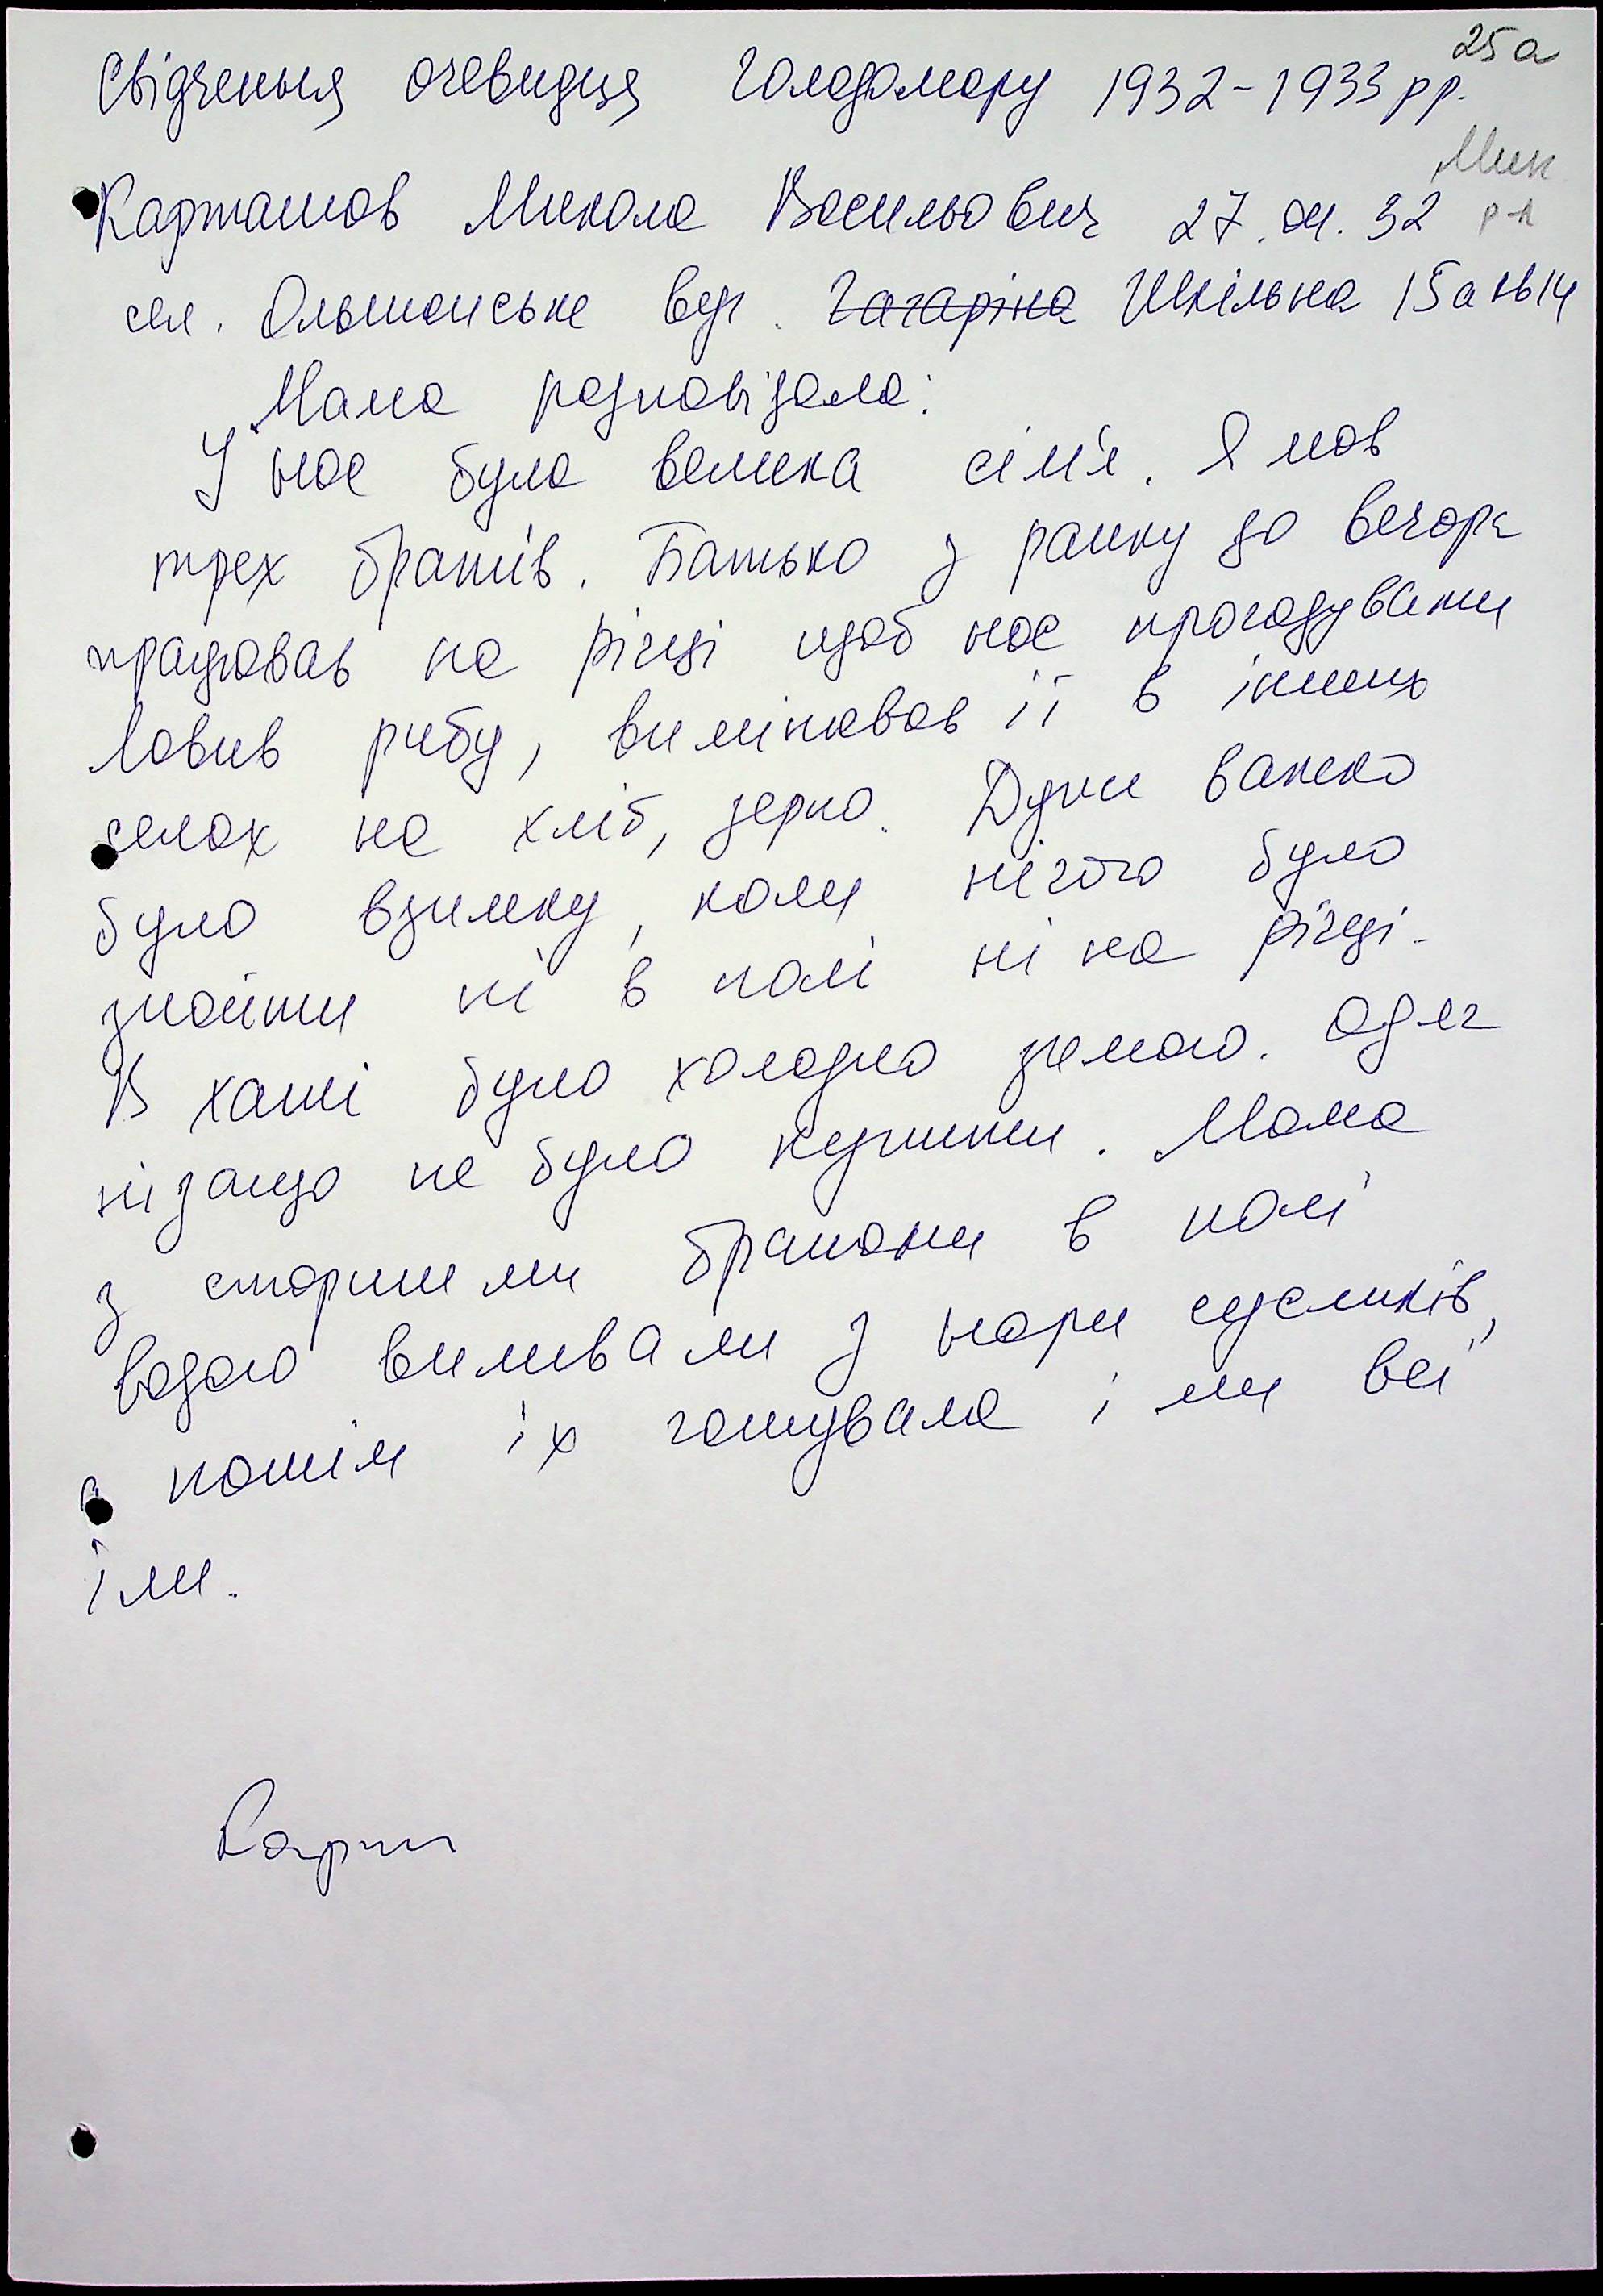 25а
Свідчення очевидця голодомору 1932-1933 рр.
Мик
Карташов Микола Васильович 27.04.32 р-н
сел. Ольшанське вул. Гагаріна Шкільна 15а кв14
Мама розповідала:
У нас була велика сім'я. Я мав
трех братів. Батько з ранку до вечора
працював на річці щоб нас прогодувати
Ловив рибу, вимінював її в інших
селах на хліб, зерно. Дуже важко
було взимку, коли нічого було
знайти ні в полі ні на річці.
В хаті було холодно зимою. Одяг
ні защо не було купити. Мама
з старшими братами в полі
водою виливали з нори сусликів,
а потім їх готувала і ми всі
їли.
Карт